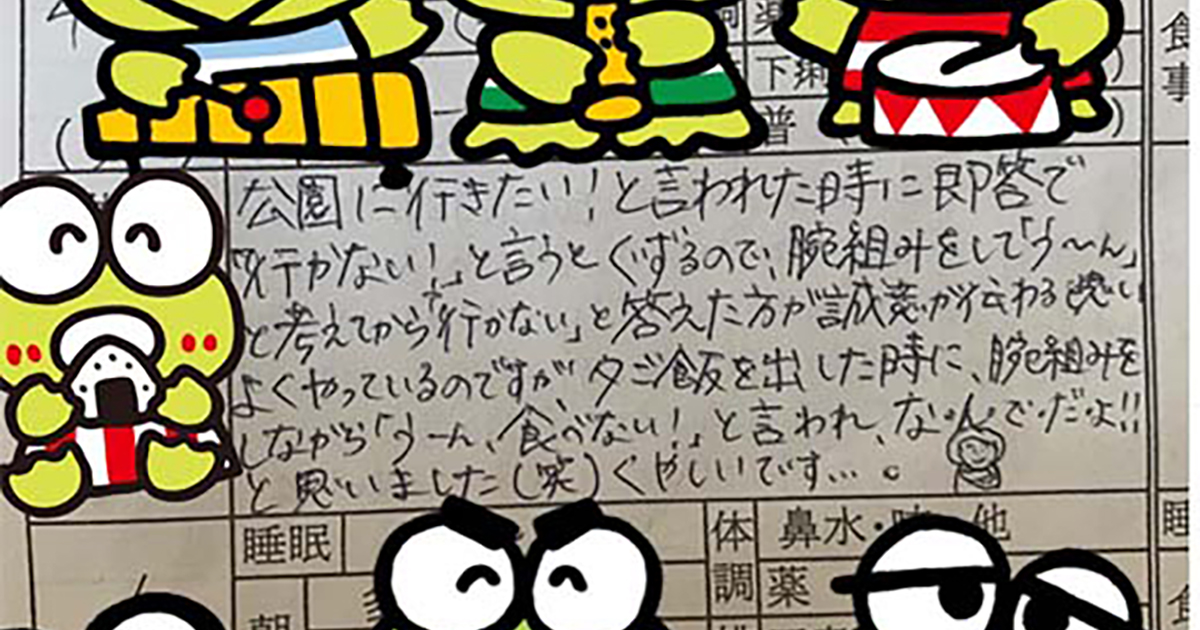 下痢
普
食事
公園に行きたい!と言われた時に即答で
「行かない!」と言うとくずるので、腕組みをして「う〜ん」
と考えてから「行かない」と答えた方が誠意が伝わると思い
よくやっているのですが、夕ご飯を出した時に、腕組みを
しながら「うーん、食べない!」と言われ、なんでだよ!!
と思いました(笑)くやしいです...。
睡眠
体調
鼻水・
他
薬
睡
食
朝